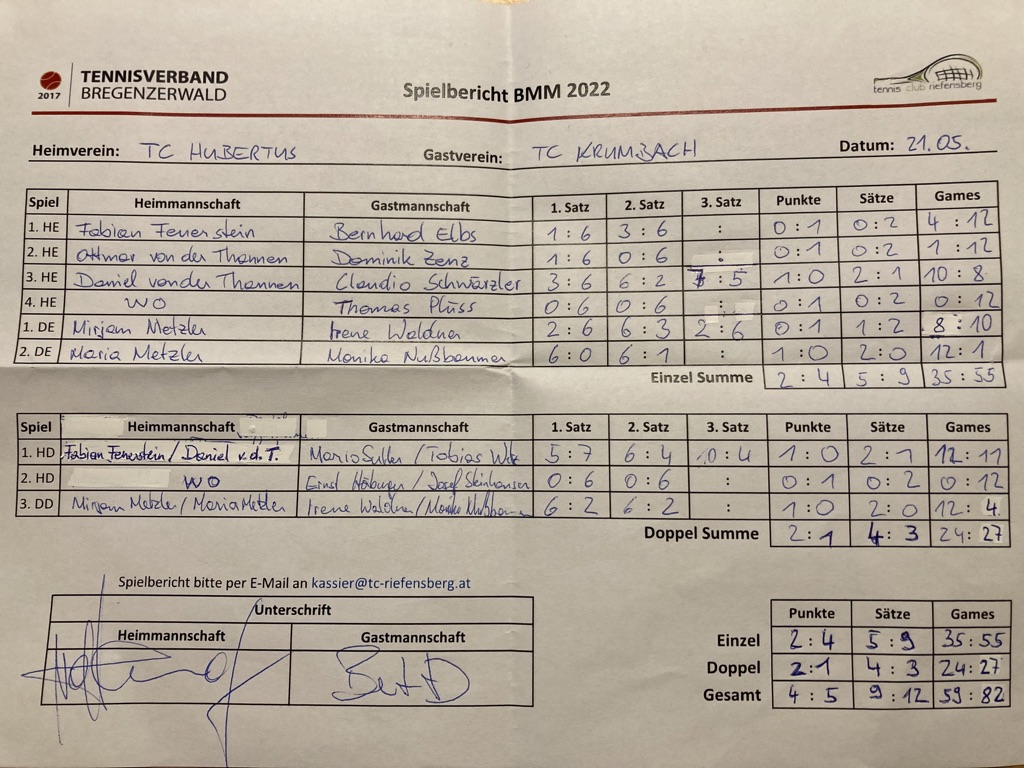 TENNISVERBAND
BREGENZERWALD
2017
Spielbericht BMM 2022
tennis club riefensberg
Heimverein: TC HUBERTUS Gastverein: TC KRUMBACH Datum: 21.05.
Spiel Heimmannschaft Gastmannschaft 1. Satz 2. Satz 3. Satz Punkte Sätze Games
1. HE Fabian Feuerstein Bernhard Elbs 1 : 6 3 : 6 : 0 : 1 0 : 2 4 : 12
2. HE Ottmar von der Thannen Dominik Zenz 1 : 6 0 : 6 : 0 : 1 0 : 2 1 : 12
3. HE Daniel von der Thannen Claudio Schwärzler 3 : 6 6 : 2 7 : 5 1 : 0 2 : 1 10 : 8
4. HE WO Thomas Plüss 0 : 6 0 : 6 : 0 : 1 0 : 2 0 : 12
1. DE Mirjam Metzler Irene Waldner 2 : 6 6 : 3 2 : 6 0 : 1 1 : 2 8 : 10
2. DE Maria Metzler Monika Nußbaumer 6 : 0 6 : 1 : 1 : 0 2 : 0 12 : 1
Einzel Summe 2 : 4 5 : 9 35 : 55
Spiel Heimmannschaft Gastmannschaft 1. Satz 2. Satz 3. Satz Punkte Sätze Games
1. HD Fabian Feuerstein / Daniel v. d. T. Mario / Tobias 5 : 7 6 : 4 : 4 1 : 0 2 : 1 12 : 11
2. HD WO Ernst / Josef 0 : 6 0 : 6 : 0 : 1 0 : 2 0 : 12
3. DD Mirjam Metzler / Maria Metzler Irene Waldner / Monika Nußbaumer 6 : 2 6 : 2 : 1 : 0 2 : 0 12 : 4
Doppel Summe 2 : 1 4 : 3 24 : 27
Spielbericht bitte per E-Mail an kassier@tc-riefensberg.at
Unterschrift
Heimmannschaft Gastmannschaft
Punkte Sätze Games
Einzel 2 : 4 5 : 9 35 : 55
Doppel 2 : 1 4 : 3 24 : 27
Gesamt 4 : 5 9 : 12 59 : 82